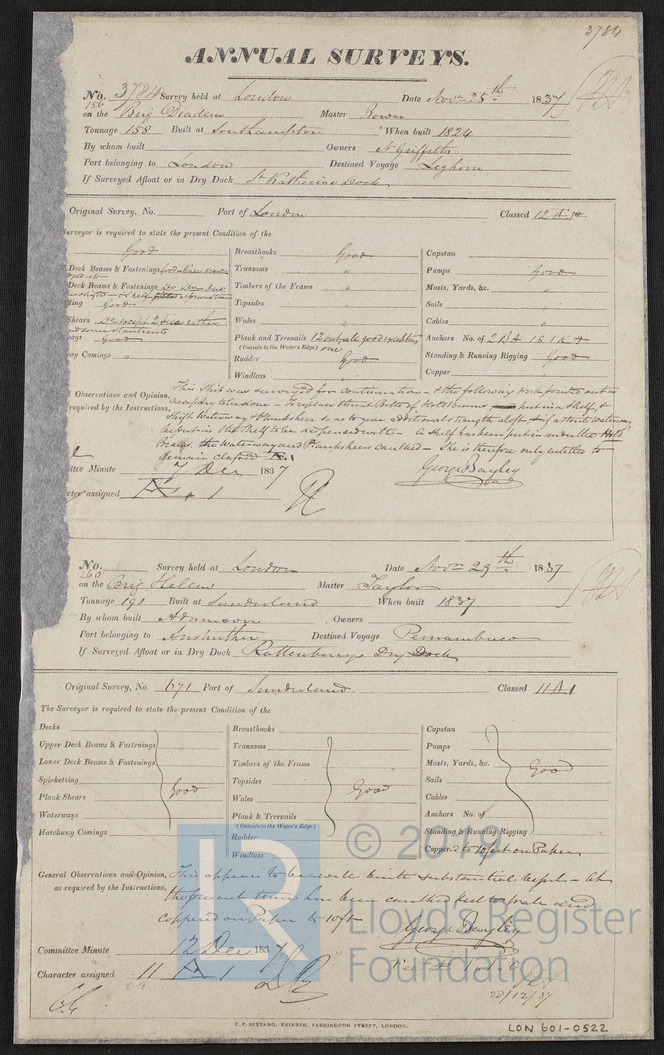 3784
ANNUAL SURVEYS.
No. 3784 Survey held at London Date Novr 25th 1837
156
on the Brig Diadem Master Bower
Tonnage 158 Built at Southampton When built 1824
By whom built Owners N Griffiths
Port belonging to London Destined Voyage Leghorn
If Surveyed Afloat or in Dry Dock St Katherine Dock
Original Survey, No. Port of London Classed 12 A 1
Surveyor is required to state the present Condition of the
Good
Deck Beams & Fastenings
Deck Beams & Fastenings
Good
Shears
Good
Comings "
Breasthooks Good
Transoms "
Timbers of the Frame "
Topsides "
Wales "
Plank and Treenails 12
(Outside to the Water's Edge)
Rudder Good
Windlass
Capstan
Pumps Good
Masts, Yards, &c. "
Sails "
Cables "
Anchors No. of 2 BA 1 S 1 K A
Standing & Running Rigging Good
Copper
Observations and Opinion, This Ship was surveyed for continuation - & the following work found
required by the Instructions, necessary to be done - To replace thwart Bolts of Hold beams put in a Shelf, or
Shift Waterway & Planksheer so as to give additional strength aloft & if a thick waterway
be put in the Shelf to be dispensed with - A Shelf has been put in under the Hold
beams, the Waterway and Planksheer caulked - She is therefore only entitled to
remain classed Æ 1
George Bayley
Committee Minute 7 Dec 1837
Character assigned Æ 1
No. Survey held at London Date Novr 29th 1837
260
on the Brig Helen Master Taylor
Tonnage 191 Built at Sunderland When built 1837
By whom built Adamson Owners
Port belonging to Anstruther Destined Voyage Pernambuco
If Surveyed Afloat or in Dry Dock Rattenburys Dry Dock
Original Survey, No. 671 Port of Sunderland Classed 11 A 1
The Surveyor is required to state the present Condition of the
Decks
Upper Deck Beams & Fastenings
Lower Deck Beams & Fastenings
Spirketting
Plank Shears
Waterways
Hatchway Comings
Good
Breasthooks
Transoms
Timbers of the Frame
Topsides
Wales
Plank & Treenails
(Outside to the Water's Edge)
Rudder
Windlass
Good
Capstan
Pumps
Masts, Yards, &c.
Sails
Cables
Anchors No. of
Standing & Running Rigging
Good
Coppered to 10 feet on Paper
General Observations and Opinion, This appears to be a well built substantial Vessel - At
as required by the Instructions, the present time has been caulked
coppered on Paper to 10 ft
George Bayley
Committee Minute 12 Dec 1837
Character assigned 11 A 1
23/12/37
© 2019
Lloyd's Register
Foundation
LR
C. F. SEYFANG, PRINTER, FARRINGDON STREET, LONDON.
LON 601-0522